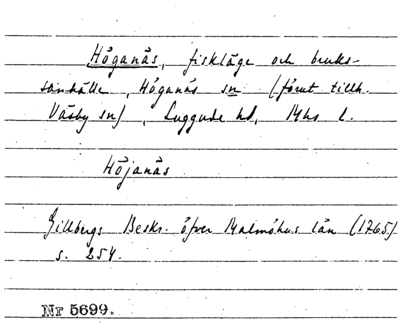 Höganäs, fiskläge och bruks-
samhälle, Höganäs sn (förut tillh.
Väsby sn), Luggude hd, Mhs l.
Höjanäs
Gillbergs Beskr. öfver Malmöhus län (1765)
s. 254.
Nr 5699.